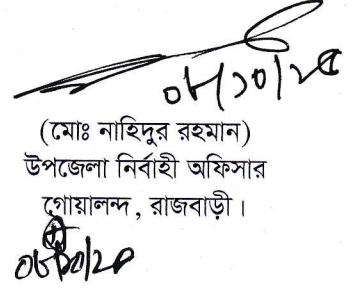 ০৮/১০/২৫
(মোঃ নাহিদুর রহমান)
উপজেলা নির্বাহী অফিসার
গোয়ালন্দ, রাজবাড়ী।